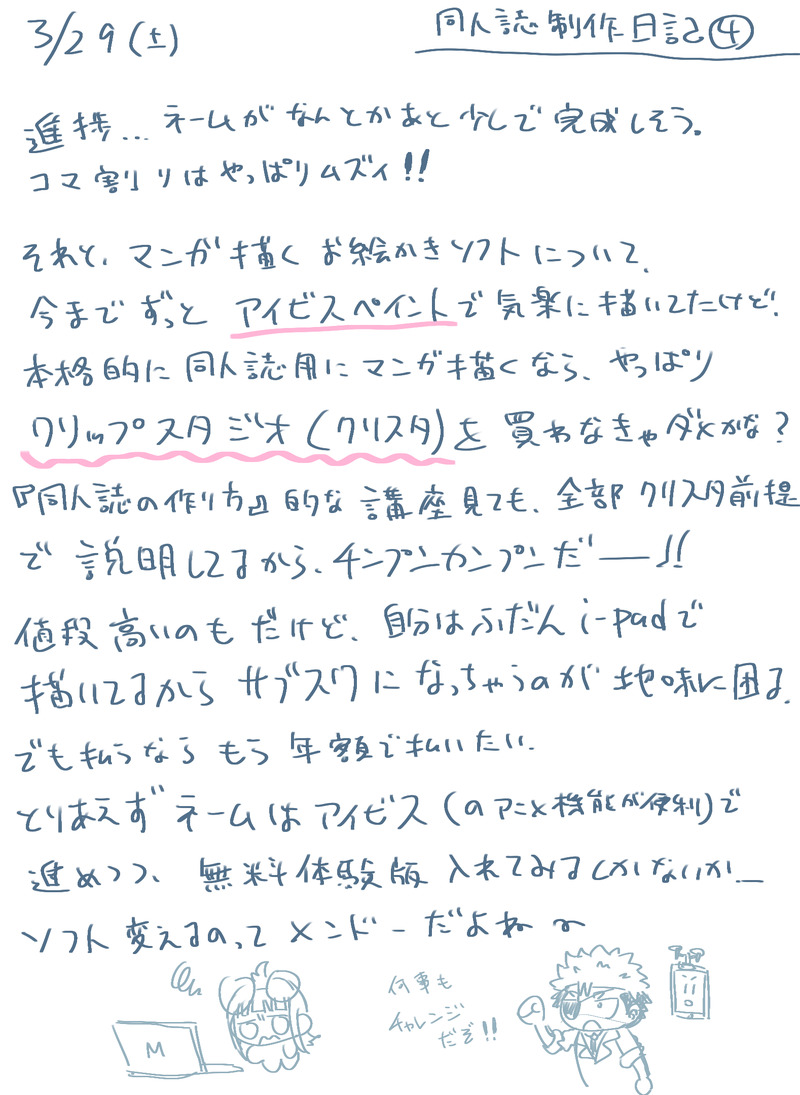 3/29(土)
同人誌制作日記④
進捗…ネームがなんとかあと少しで完成しそう。
コマ割りはやっぱりムズイ!!
それと、マンガ描くお絵かきソフトについて、
今までずっとアイビスペイントで気楽に描いてたけど、
本格的に同人誌用にマンガ描くなら、やっぱり
クリップスタジオ(クリスタ)を買わなきゃダメかな?
『同人誌の作り方』的な講座見ても、全部クリスタ前提
で説明してるから、チンプンカンプンだー!!
値段高いのもだけど、自分はふだんi-padで
描いてるからサブスクになっちゃうのが地味に困る。
でも払うならもう年額で払いたい。
とりあえずネームはアイビス(のアニメ機能が便利)で
進めつつ、無料体験版入れてみるしかないか…
ソフト変えるのってメンドーだよね〜
何事も
チャレンジ
だぞ!!
M